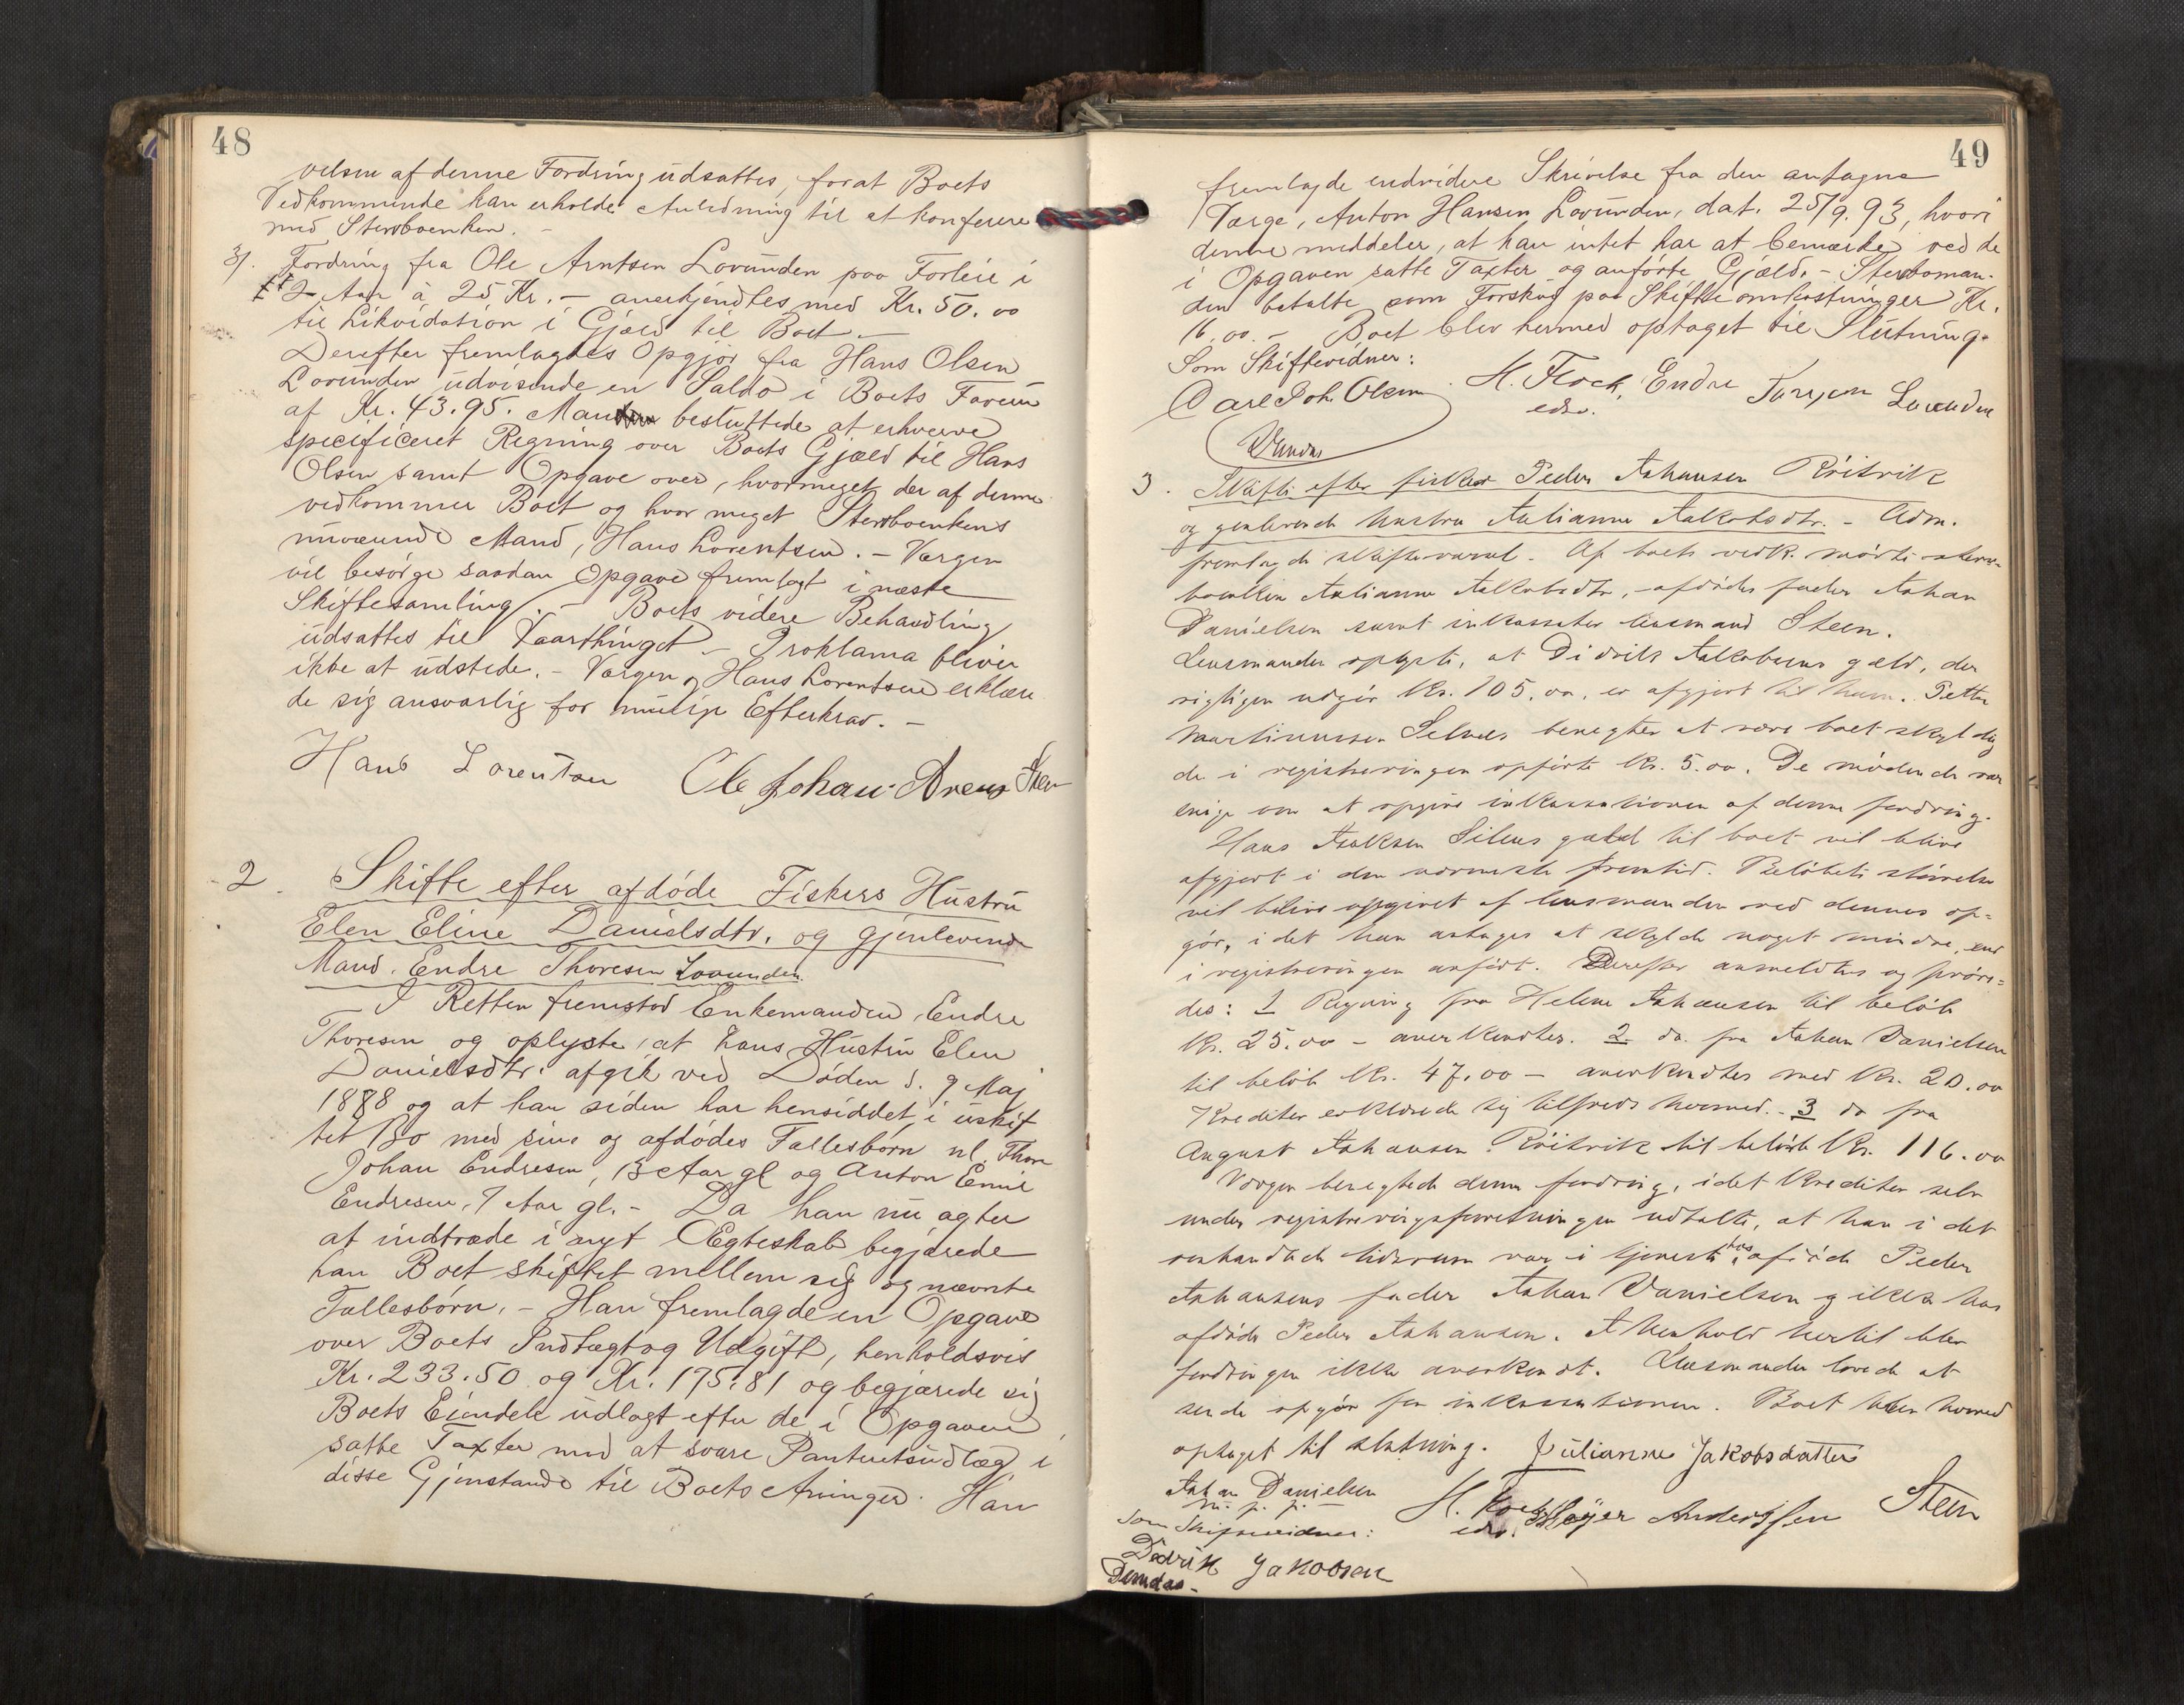 48
velsen af denne Fordring udsattes, forat Boets
Vedkommende kan erholde Anledning til at konferere
med Stervboenken. -
3). Fordring fra Ole Arntsen Lovunden paa Forleie i
2 Aar à 25 Kr. - anerkjendtes med Kr. 50.00
til Likvidation i Gjæld til Boet. -
Derefter fremlagdes Opgjør fra Hans Olsen
Lovunden udvisende en Saldo i Boets Favør
af Kr. 43.95. Man besluttede at erhverve
specificeret Regning over Boets Gjæld til Hans
Olsen samt Opgave over, hvormeget der af denne
vedkommer Boet og hvor meget Stervboenkens
nuværende Mand, Hans Lorentsen. - Værgen
vil besørge saadan Opgave fremlagt i næste
Skiftesamling. - Boets videre Behandling
udsattes til Vaarthinget. - Proklama bliver
ikke at udstede. - Værgen og Hans Lorentsen erklære
de sig ansvarlig for mulige Efterkrav. -
Hans Lorentsen Ole Johan Arens Steen
2. Skifte efter afdøde Fiskers Hustru
Elen Eline Danielsdtr. og gjenlevende
Mand Endre Thoresen Lovunden.
I Retten fremstod Enkemanden, Endre
Thoresen og oplyste, at hans Hustru Elen
Danielsdtr. afgik ved Døden d. 9 Maj
1888 og at han siden har hensiddet i uskif
tet Bo med sine og afdødes Fællesbørn nl. Thore
Johan Endresen, 13 Aar gl og Anton Emil
Endresen, 7 Aar gl. - Da han nu agter
at indtræde i nyt Ægteskab begjærede
han Boet skiftet mellem sig og nævnte
Fællesbørn. - Han fremlagde en Opgave
over Boets Indtægt og Udgift, henholdsvis
Kr. 233.50 og Kr. 175.81 og begjærede sig
Boets Eiendele udlagt efter de i Opgaven
satte Taxter mod at svare Panteretsudlæg i
disse Gjenstande til Boets Arvinger. Han
49
fremlagde endvidere Skrivelse fra den antagne
Værge, Anton Hansen Lovunden, dat. 25/9.93, hvori
denne meddeler, at han intet har at bemærke ved de
i Opgaven satte Taxter og anførte Gjæld. - Stervboman-
den betalte som Forskud paa Skifteomkostninger Kr.
16.00. - Boet blev hermed optaget til Slutning.
Som Skiftevidner:
Carl Joh. Olsen H. Flock, Endre Lovunden
edsv.
3. Skifte efter fisker Peder Johansen Röitvik
og genlevende hustru Julianne Jakobsdtr. - Adm.
fremlagde skiftevarsel. Af boets vedk. mödte sterv-
boenken Julianne Jakobsdtr., afdödes fader Johan
Danielsen samt inkassator lensmand Steen.
Lensmanden oplyste, at Didrik Jakobsens gæld, der
rigtigen udgör Kr. 105.00, er afgjort til ham. Petter
Martinussen Selnes benegter at være boet skyldig
de i registreringen opförte Kr. 5.00. De mödende var
enige om at opgive inkassationen af denne fordring.
Hans Isaksen Silnes gæld til boet vil blive
afgjort i den nærmeste fremtid. Belöbets störrelse
vil blive opgivet af lensmanden ved dennes op-
gör, idet han antages at skylde noget mindre, end
i registreringen anfört. Derefter anmeldtes og pröve-
des: 1 Regning fra Helene Johansen til belöb
Kr. 25.00 - anerkendtes. 2 do. fra Johan Danielsen
til belöb Kr. 47.00 - anerkendtes med Kr. 20.00
Kreditor erklærede sig tilfreds hermed. - 3 do fra
August Johansen Röitvik til belöb Kr. 116.00
Værgen benegtede denne fordring, idet Kreditor selv
under registreringsforretningen udtalte, at han i det
omhandlede tidsrum var i tjeneste hos afdöde Peder
Johansens fader Johan Danielsen og ikke hos
afdöde Peder Johansen. I henhold hertil blev
fordringen ikke anerkendt. Lensmanden lovede at
sende opgör for inkassationen. Boet blev hermed
optaget til slutning. Julianne Jakobsdatter
Johan Danielsen
m. p. p.
H. Flock edsv. Meyer Anderssen Steen
Som Skiftevidner:
Didrik Jakobsen